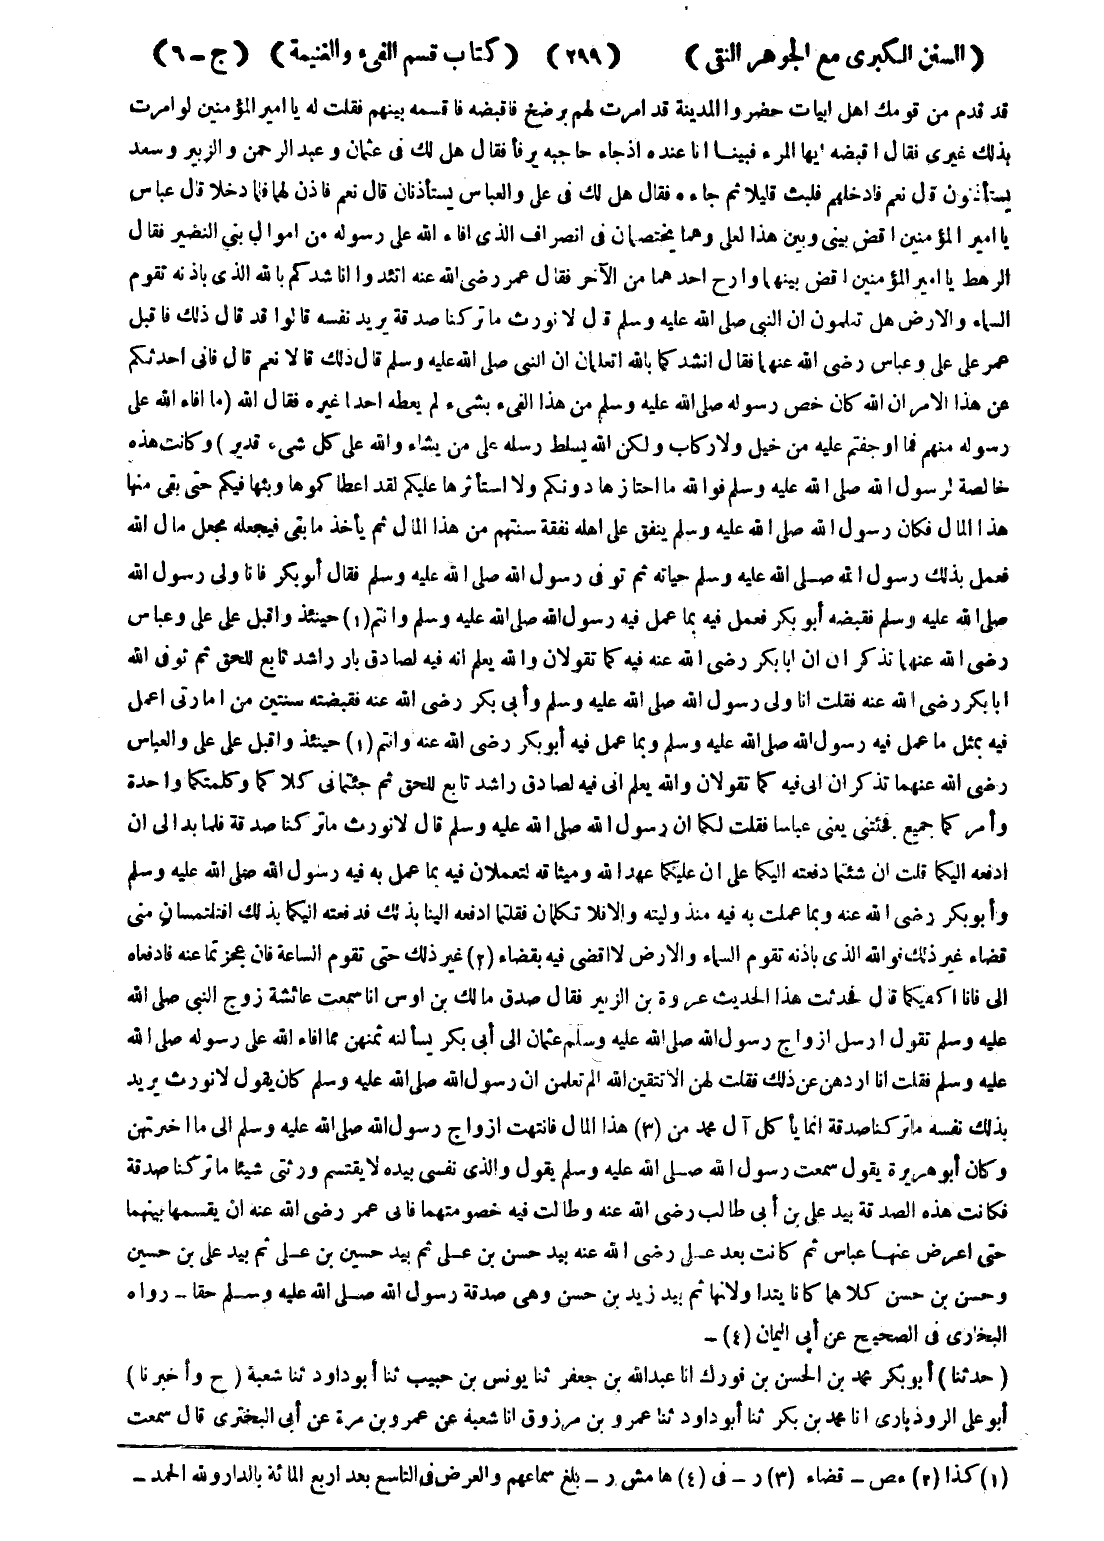 (السنن الكبرى مع الجوهر النقى) (٢٩٩) (كتاب قسم الفىء والغنيمة) (ج - ٦)
قد قدم من قومك اهل ابيات حضروا المدينة قد امرت لهم برضخ فاقبضه فاقسمه بينهم فقلت له يا امير المؤمنين لو امرت
بذلك غيرى فقال اقبضه ايها المرء فبينا انا عنده اذجاء حاجبه يرفأ فقال هل لك فى عثمان و عبد الرحمن والزبير وسعد
يستأذنون قال نعم فادخلهم فلبث قليلا ثم جاءه فقال هل لك فى على والعباس يستأذنان قال نعم فاذن لهما فلما دخلا قال عباس
يا امير المؤمنين اقض بينى وبين هذا لعلى وهما يختصمان فى انصراف الذى افاء الله على رسوله من اموال بني النضير فقال
الرهط يا امير المؤمنين اقض بينهما وارح احدهما من الآخر فقال عمر رضى الله عنه اتئدوا انا شدكم بالله الذى باذنه تقوم
السماء والارض هل تعلمون ان النبي صلى الله عليه وسلم قال لا نورث ما تركنا صدقة يريد نفسه قالوا قد قال ذلك فاقبل
عمر على على وعباس رضى الله عنهما فقال انشدكما بالله اتعلمان ان النبي صلى الله عليه وسلم قال ذلك قالا نعم قال فانى احدثكم
عن هذا الامر ان الله كان خص رسوله صلى الله عليه وسلم من هذا الفىء بشىء لم يعطه احدا غيره فقال الله (ما افاء الله على
رسوله منهم فما اوجفتم عليه من خيل ولا ركاب ولكن الله يسلط رسله على من يشاء والله على كل شىء قدير) وكانت هذه
خالصة لرسول الله صلى الله عليه وسلم فوالله ما احتازها دونكم ولا استأثرها عليكم لقد اعطاكموها وبثها فيكم حتى بقى منها
هذا المال فكان رسول الله صلى الله عليه وسلم ينفق على اهله نفقة سنتهم من هذا المال ثم يأخذ ما بقى فيجعله مجعل مال الله
فعمل بذلك رسول الله صلى الله عليه وسلم حياته ثم توفى رسول الله صلى الله عليه وسلم فقال أبوبكر فانا ولى رسول الله
صلى الله عليه وسلم فقبضه أبو بكر فعمل فيه بما عمل فيه رسول الله صلى الله عليه وسلم وانتم (١) حينئذ واقبل على على وعباس
رضى الله عنهما تذكران ان ابابكر رضى الله عنه فيه كما تقولان والله يعلم انه فيه لصادق بار راشد تابع للحق ثم توفى الله
ابابكر رضى الله عنه فقلت انا ولى رسول الله صلى الله عليه وسلم وأبى بكر رضى الله عنه فقبضته سنتين من امارتى اعمل
فيه بمثل ما عمل فيه رسول الله صلى الله عليه وسلم وبما عمل فيه أبوبكر رضى الله عنه وانتم (١) حينئذ واقبل على على والعباس
رضى الله عنهما تذكران انى فيه كما تقولان والله يعلم انى فيه لصادق راشد تابع للحق ثم جئتمانى كلاكما وكلمتكما واحدة
وأمركما جميع فجئتنى يعنى عباسا فقلت لكما ان رسول الله صلى الله عليه وسلم قال لا نورث ما تركنا صدقة فلما بدالى ان
ادفعه اليكما قلت ان شئتما دفعته اليكما على ان عليكما عهد الله وميثاقه لتعملان فيه بما عمل به فيه رسول الله صلى الله عليه وسلم
وأبوبكر رضى الله عنه وبما عملت به فيه منذ وليته والافلا تكلمان فقلتما ادفعه الينا بذلك فدفعته اليكما بذلك افتلتمسان منى
قضاء غير ذلك فوالله الذى باذنه تقوم السماء والارض لا اقضى فيه بقضاء (٢) غير ذلك حتى تقوم الساعة فان عجزتما عنه فادفعاه
الى فانا اكفيكما قال فحدثت هذا الحديث عروة بن الزبير فقال صدق مالك بن اوس انا سمعت عائشة زوج النبي صلى الله
عليه وسلم تقول ارسل ازواج رسول الله صلى الله عليه وسلم عثمان الى أبى بكر يسألنه ثمنهن مما افاء الله على رسوله صلى الله
عليه وسلم فقلت انا اردهن عن ذلك فقلت لهن الا تتقين الله الم تعلمن ان رسول الله صلى الله عليه وسلم كان يقول لا نورث يريد
بذلك نفسه ما تركنا صدقة انما يأكل آل محمد من (٣) هذا المال فانتهت ازواج رسول الله صلى الله عليه وسلم الى ما اخبرتهن
وكان أبوهريرة يقول سمعت رسول الله صلى الله عليه وسلم يقول والذى نفسى بيده لا يقتسم ورثتى شيئا ما تركنا صدقة
فكانت هذه الصدقة بيد على بن أبى طالب رضى الله عنه وطالت فيه خصومتهما فابى عمر رضى الله عنه ان يقسمها بينهما
حتى اعرض عنها عباس ثم كانت بعد على رضى الله عنه بيد حسن بن على ثم بيد حسين بن على ثم بيد على بن حسين
وحسن بن حسن كلاهما كانا يتداولانها ثم بيد زيد بن حسن وهى صدقة رسول الله صلى الله عليه وسلم حقا - رواه
البخارى فى الصحيح عن أبى اليمان (٤) -
(حدثنا) أبوبكر محمد بن الحسن بن فورك انا عبدالله بن جعفر ثنا يونس بن حبيب ثنا أبوداود ثنا شعبة (ح وأخبرنا)
أبو على الروذبارى انا محمد بن بكر ثنا أبوداود ثنا عمرو بن مرزوق انا شعبة عن عمرو بن مرة عن أبى البخترى قال سمعت
(١) كذا (٢) مص - قضاء (٣) ر - فى (٤) هامش ر - بلغ سماعهم والعرض فى التاسع بعد اربع المائة بالدار ولله الحمد -